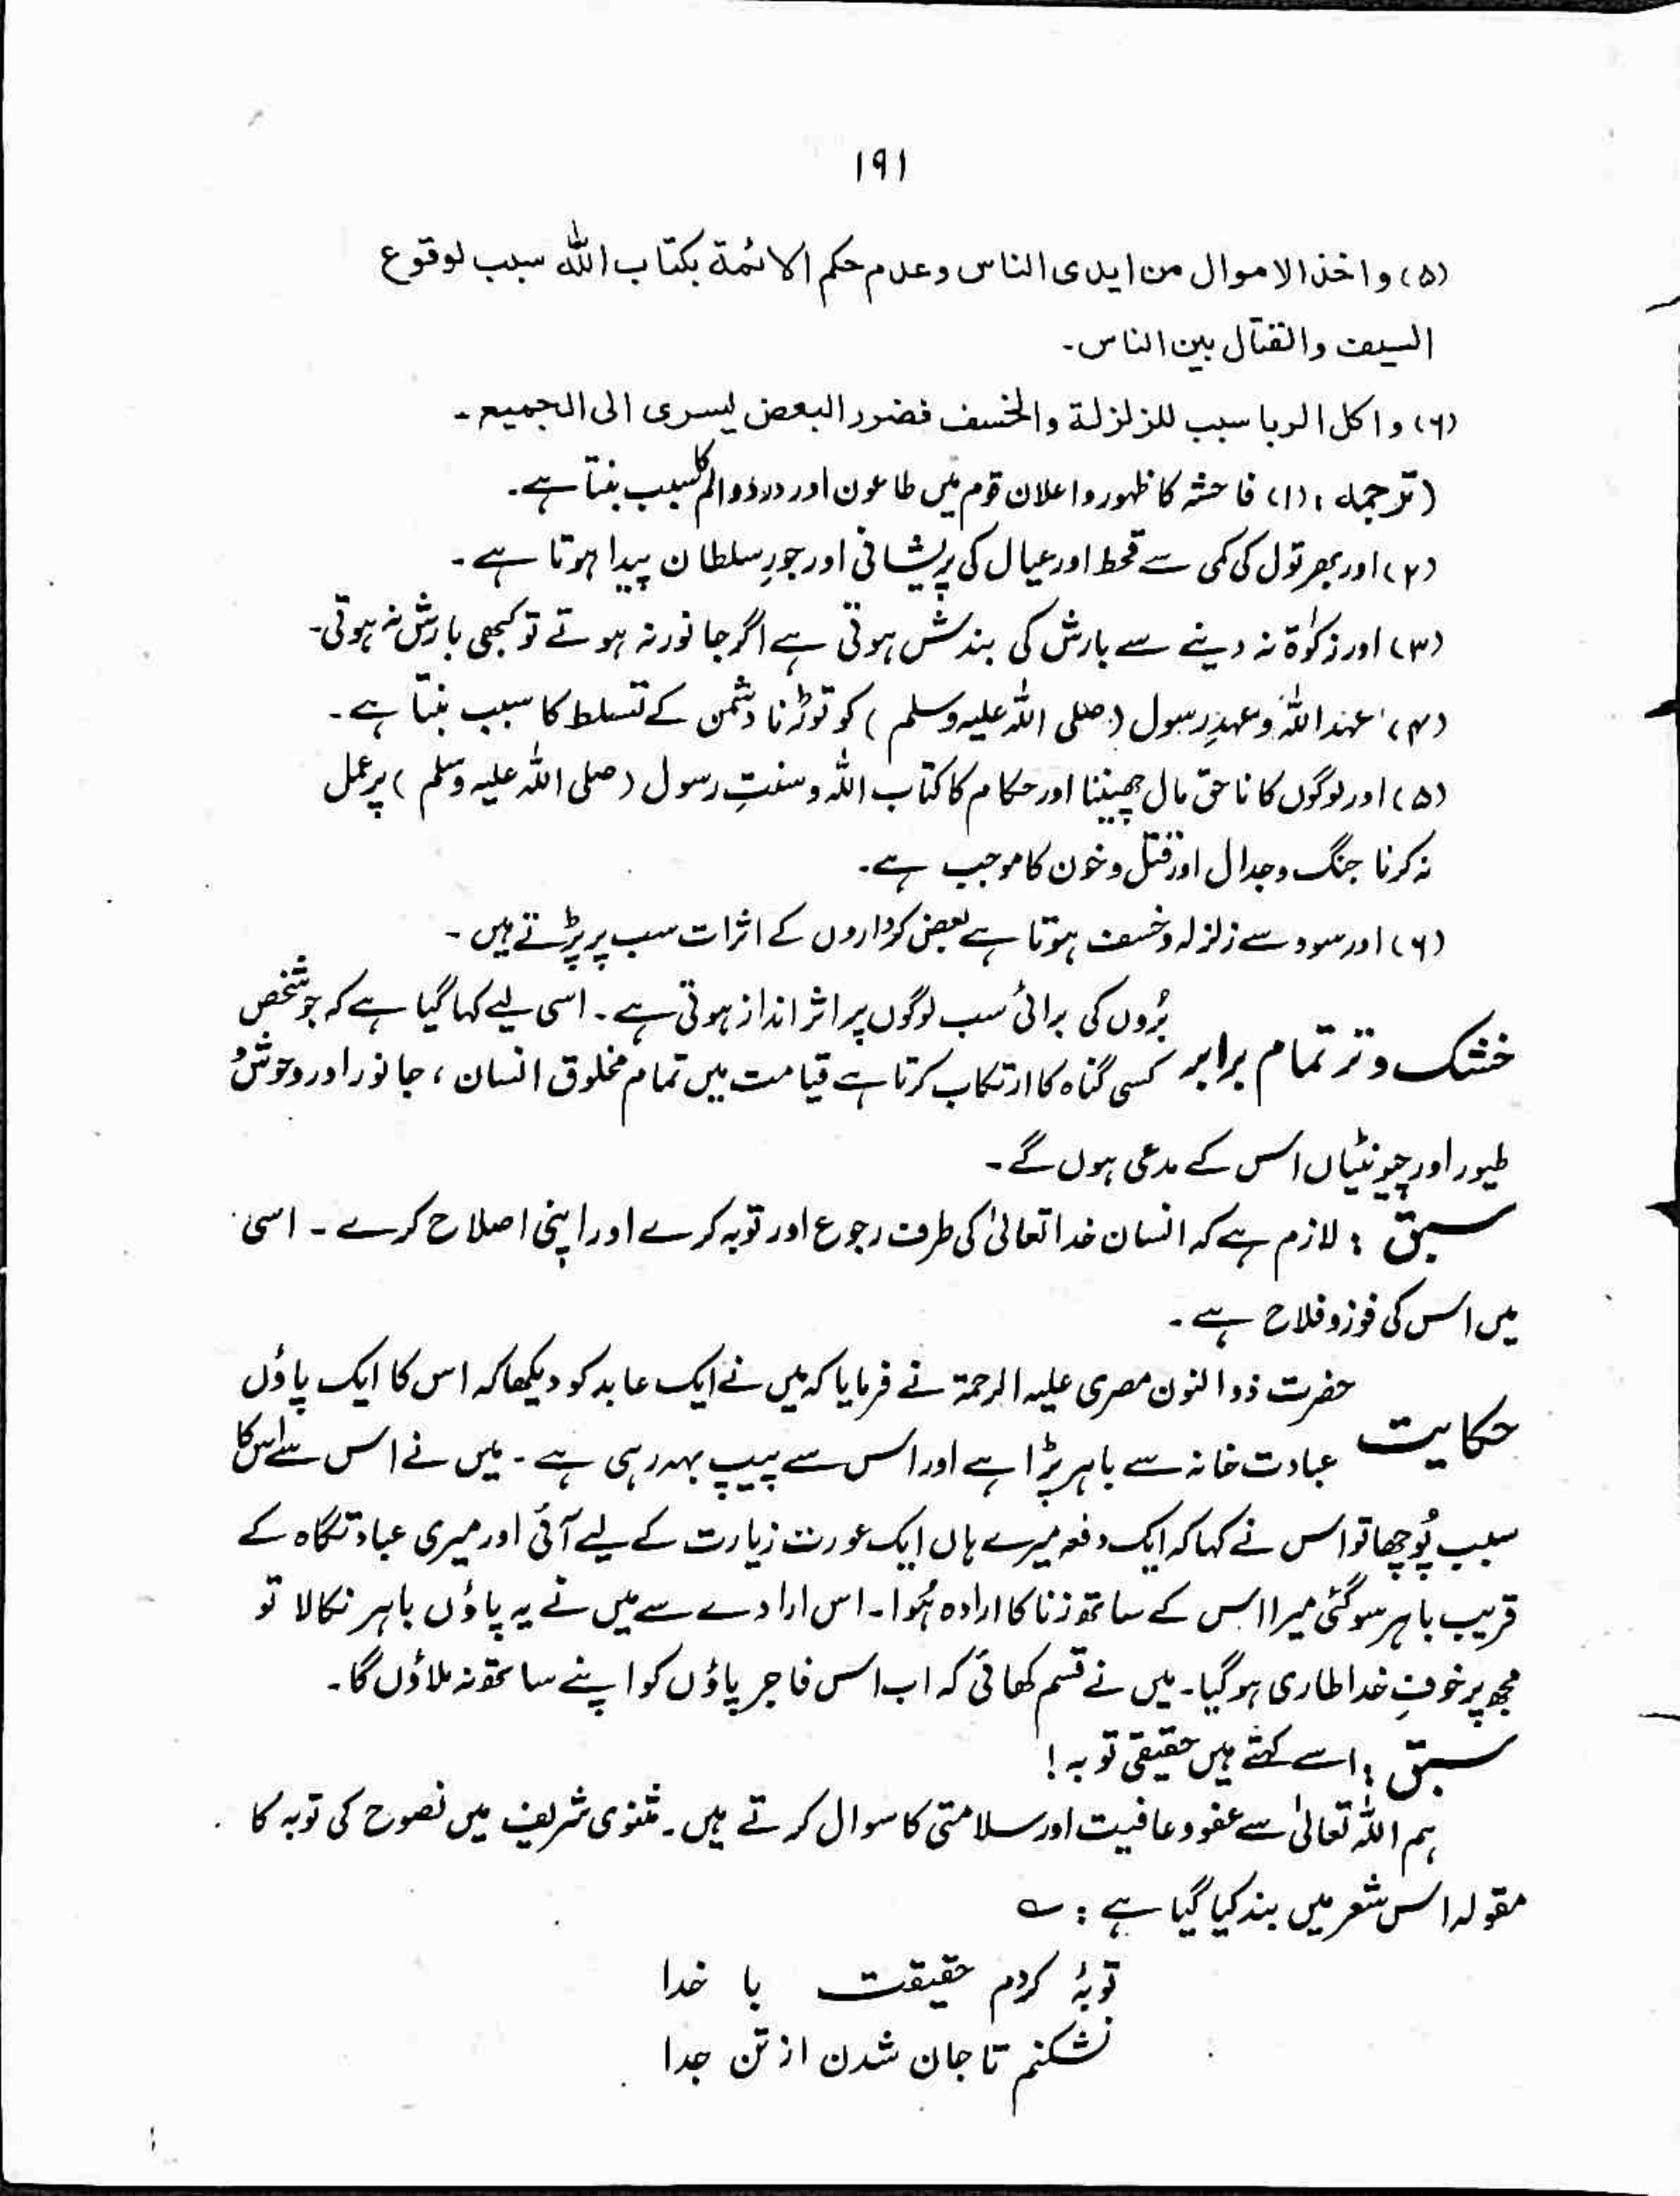 ۱۹۱
(۵) و اخذ الاموال من ایدی الناس وعدم حکم الائمة بکتاب اللہ سبب لوقوع
السیف والقتال بین الناس۔
(۶) و اکل الربا سبب للزلزلة والخسف فضرر البعض یسری الی الجمیع۔
(ترجمہ: (۱) فاحشہ کا ظہور و اعلان قوم میں طاعون اور درد و الم کا سبب بنتا ہے۔
(۲) اور بھر تول کی کمی سے قحط اور عیال کی پریشانی اور جورِ سلطان پیدا ہوتا ہے۔
(۳) اور زکوٰۃ نہ دینے سے بارش کی بندش ہوتی ہے اگر جانور نہ ہوتے تو کبھی بارش نہ ہوتی۔
(۴) عہد اللہ و عہدِ رسول (صلی اللہ علیہ وسلم) کو توڑنا دشمن کے تسلط کا سبب بنتا ہے۔
(۵) اور لوگوں کا ناحق مال چھیننا اور حکام کا کتاب اللہ و سنتِ رسول (صلی اللہ علیہ وسلم) پر عمل
نہ کرنا جنگ و جدال اور قتل و خون کا موجب ہے۔
(۶) اور سود سے زلزلہ و خسف ہوتا ہے بعض کرداروں کے اثرات سب پر پڑتے ہیں۔
خشک و تر تمام برابر بُروں کی برائی سب لوگوں پر اثر انداز ہوتی ہے۔ اسی لیے کہا گیا ہے کہ جو شخص
کسی گناہ کا ارتکاب کرتا ہے قیامت میں تمام مخلوق انسان، جانور اور وحوش و
طیور اور چیونٹیاں اس کے مدعی ہوں گے۔
سبق: لازم ہے کہ انسان خدا تعالیٰ کی طرف رجوع اور توبہ کرے اور اپنی اصلاح کرے۔ اسی
میں اس کی فوز و فلاح ہے۔
حکایت حضرت ذوالنون مصری علیہ الرحمۃ نے فرمایا کہ میں نے ایک عابد کو دیکھا کہ اس کا ایک پاؤں
عبادت خانہ سے باہر پڑا ہے اور اس سے پیپ بہہ رہی ہے۔ میں نے اس سے اس کا
سبب پُوچھا تو اس نے کہا کہ ایک دفعہ میرے ہاں ایک عورت زیارت کے لیے آئی اور میری عبادتگاہ کے
قریب باہر سو گئی میرا اس کے ساتھ زنا کا ارادہ ہُوا۔ اس ارادے سے میں نے یہ پاؤں باہر نکالا تو
مجھ پر خوفِ خدا طاری ہو گیا۔ میں نے قسم کھائی کہ اب اس فاجر پاؤں کو اپنے ساتھ نہ ملاؤں گا۔
سبق: اسے کہتے ہیں حقیقی توبہ!
ہم اللہ تعالیٰ سے عفو و عافیت اور سلامتی کا سوال کرتے ہیں۔ مثنوی شریف میں نصوح کی توبہ کا
مقولہ اس شعر میں بند کیا گیا ہے: ؎
توبۂ کردم حقیقت با خدا
نشکنم تا جان شدن از تن جدا